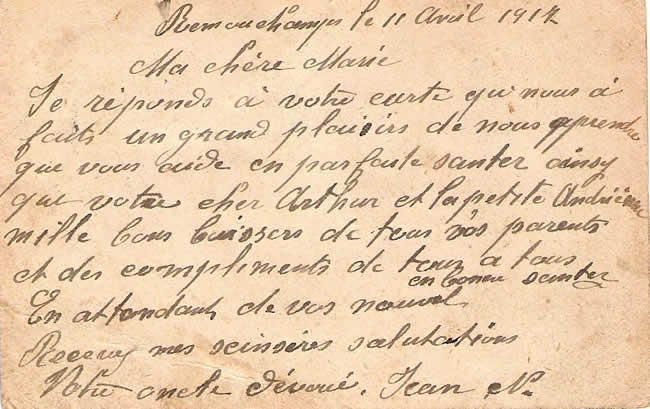 Remouchamps le 11 Avril 1917
Ma chère Marie
Je réponds à votre carte qui nous à
faits un grand plaisirs de nous aprendre
que vous aide en parfaite santer ainsy
que votre cher Arthur et la petite Andrée
mille bons baissers de tous vos parents
et des compliments de tous a tous
en bonne santer
En attendant de vos nouvel
Recevez mes seinsères salutations
Votre oncle dévoué. Jean N.